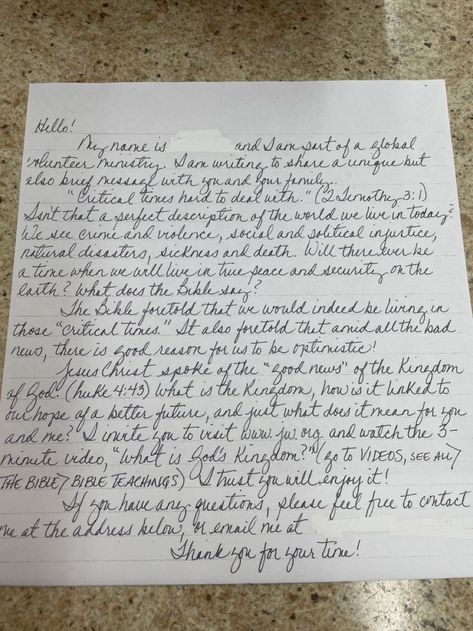 Hello!
My name is and I am part of a global
volunteer ministry. I am writing to share a unique but
also brief message with you and your family.
"Critical times hard to deal with." (2 Timothy 3:1)
Isn't that a perfect description of the world we live in today?
We see crime and violence, social and political injustice,
natural disasters, sickness and death. Will there ever be
a time when we will live in true peace and security on the
earth? What does the Bible say?
The Bible foretold that we would indeed be living in
those "critical times." It also foretold that amid all the bad
news, there is good reason for us to be optimistic!
Jesus Christ spoke of the "good news" of the Kingdom
of God. (Luke 4:43) What is the Kingdom, how is it linked to
our hope of a better future, and just what does it mean for you
and me? I invite you to visit www.jw.org and watch the 3-
minute video, "What is God's Kingdom?" (go to VIDEOS, SEE ALL>
THE BIBLE> BIBLE TEACHINGS) I trust you will enjoy it!
If you have any questions, please feel free to contact
me at the address below, or email me at
Thank you for your time!